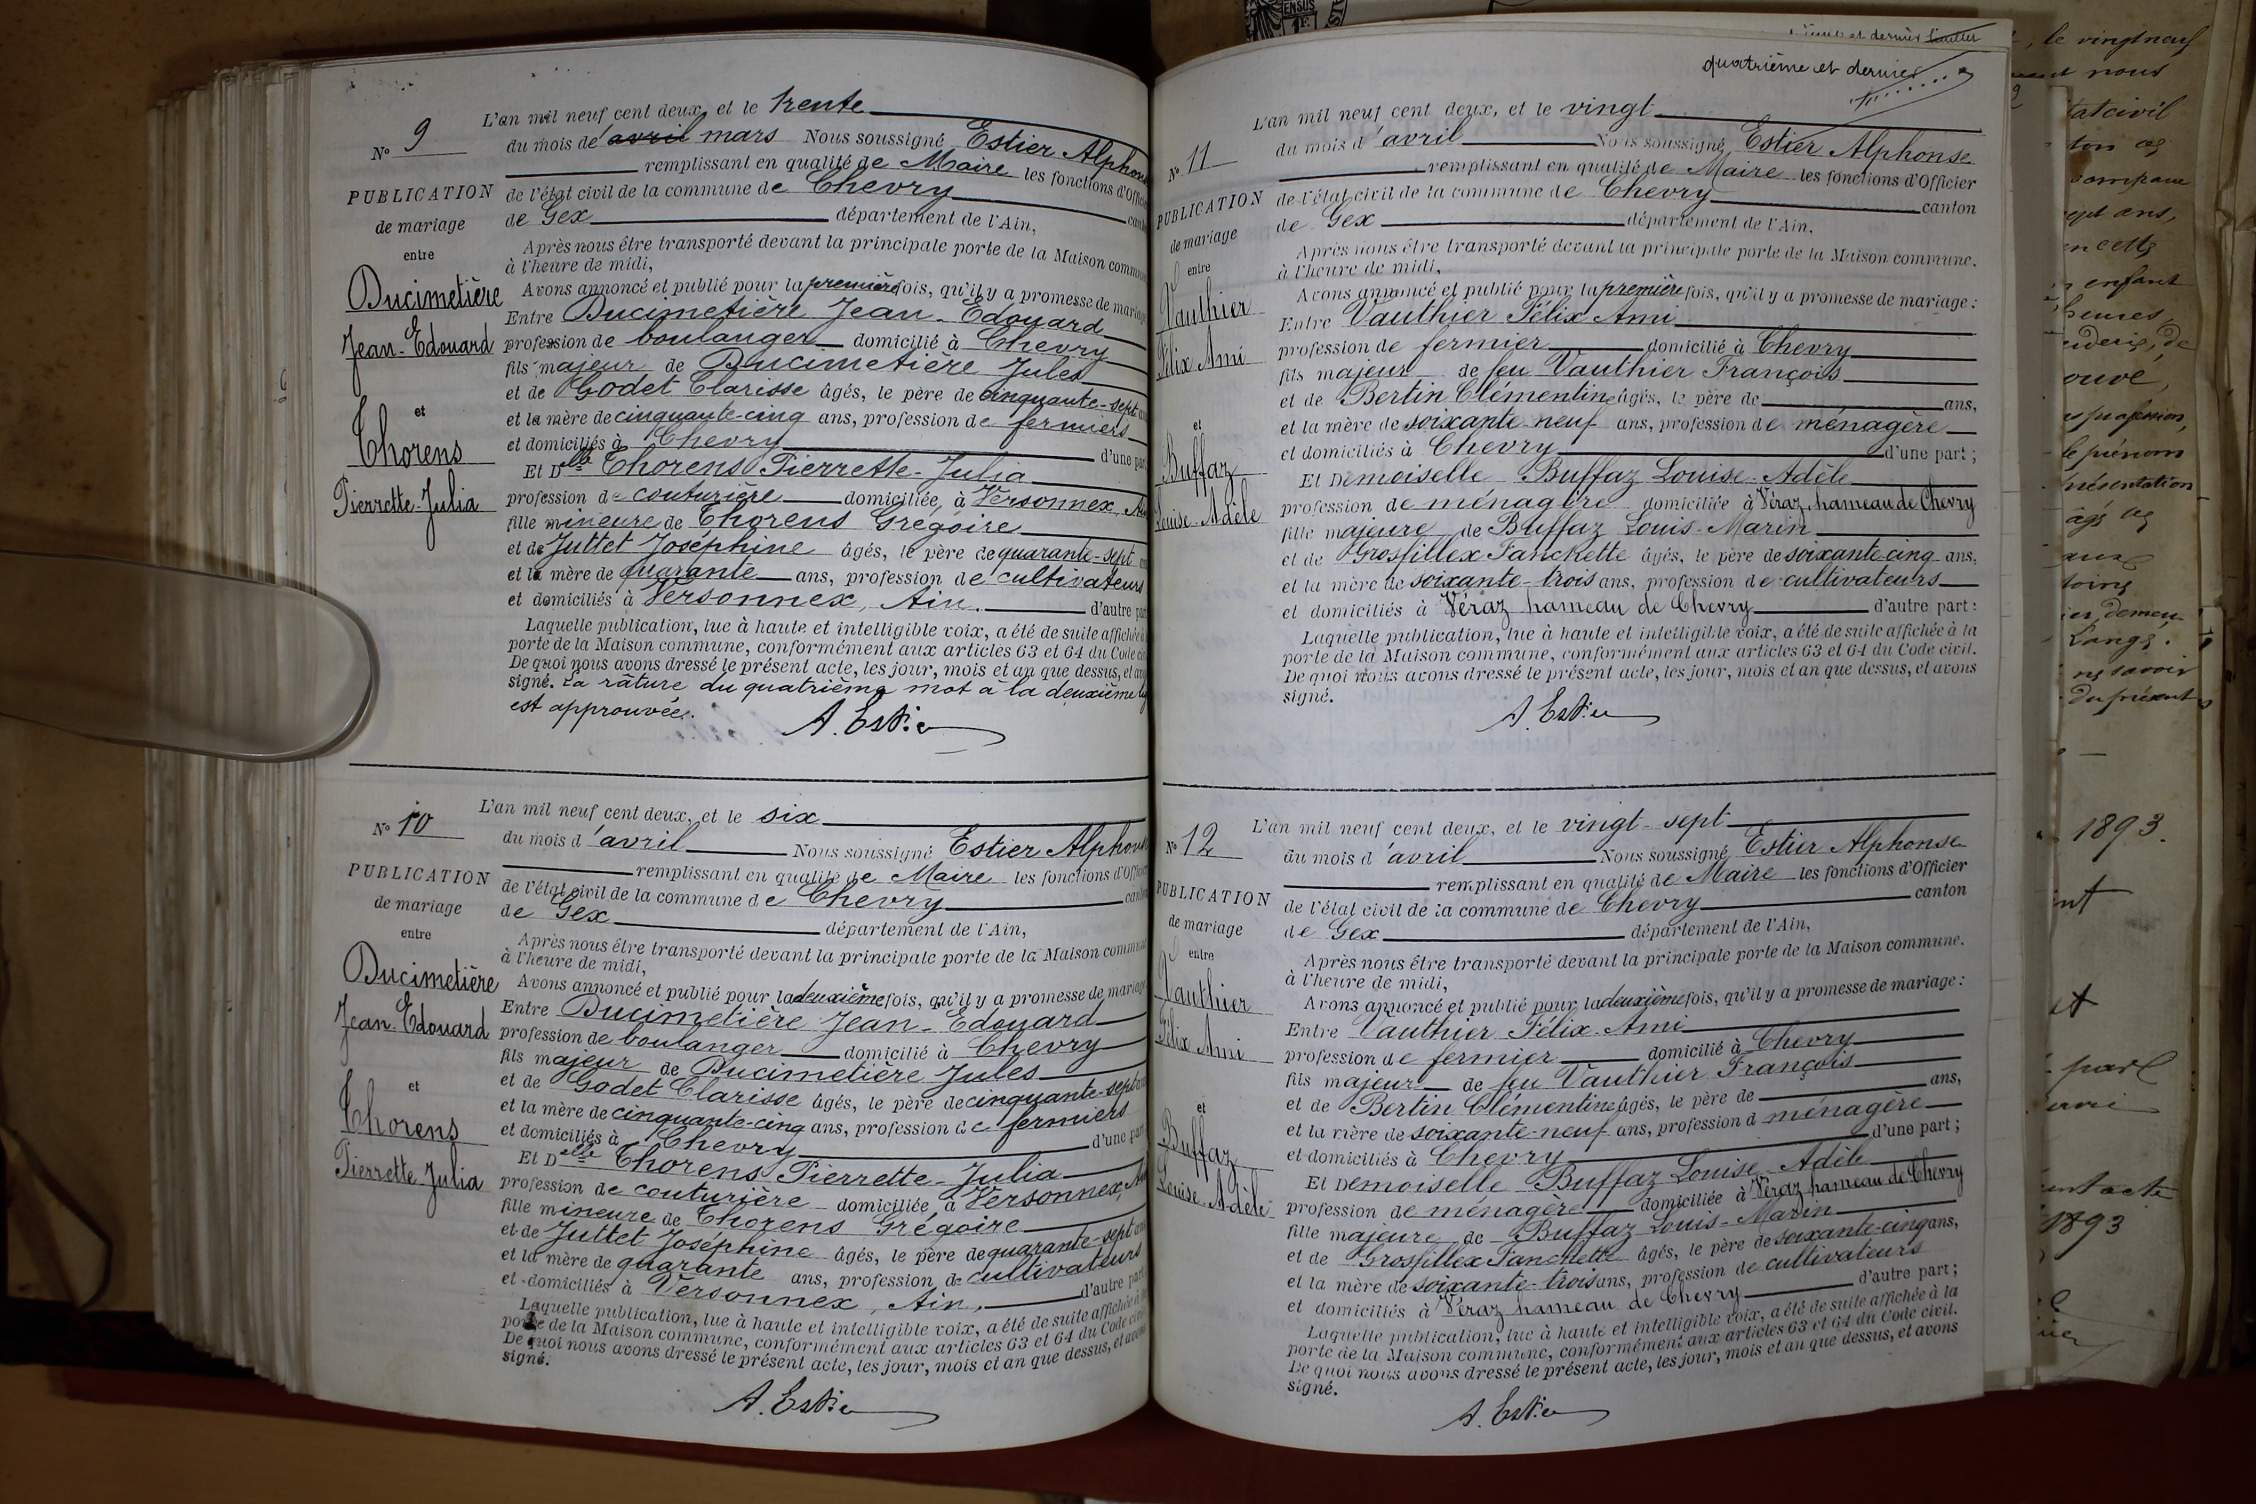 N° 9
PUBLICATION
de mariage
entre
Ducimetière
Jean-Edouard
et
Thorens
Pierrette-Julia
L'an mil neuf cent deux, et le trente
du mois de avril mars Nous soussigné Estier Alphons
remplissant en qualité de Maire les fonctions d'Offic
de l'état civil de la commune de Chevry cant
de Gex département de l'Ain,
Après nous être transporté devant la principale porte de la Maison commun
à l'heure de midi,
Avons annoncé et publié pour la première fois, qu'il y a promesse de mariage
Entre Ducimetière Jean-Edouard
profession de boulanger domicilié à Chevry
fils majeur de Ducimetière Jules
et de Godet Clarisse âgés, le père de cinquante-sept an
et la mère de cinquante-cinq ans, profession de fermiers
et domiciliés à Chevry d'une part
Et Delle Thorens Pierrette-Julia
profession de couturière domiciliée, à Versonnex, Ain
fille mineure de Thorens Grégoire
et de Juttet Joséphine âgés, le père de quarante-sept
et la mère de quarante ans, profession de cultivateurs
et domiciliés à Versonnex, Ain. d'autre part
Laquelle publication, lue à haute et intelligible voix, a été de suite affichée à
porte de la Maison commune, conformément aux articles 63 et 64 du Code ci
De quoi nous avons dressé le présent acte, les jour, mois et an que dessus, et avo
signé. La râture du quatrième mot à la deuxième lig
est approuvée.
A. Estier
N° 10
PUBLICATION
de mariage
entre
Ducimetière
Jean-Edouard
et
Thorens
Pierrette-Julia
L'an mil neuf cent deux, et le six
du mois d'avril Nous soussigné Estier Alphons
remplissant en qualité de Maire les fonctions d'Officier
de l'état civil de la commune de Chevry canton
de Gex département de l'Ain,
Après nous être transporté devant la principale porte de la Maison commun
à l'heure de midi,
Avons annoncé et publié pour la deuxième fois, qu'il y a promesse de mariage
Entre Ducimetière Jean-Edouard
profession de boulanger domicilié à Chevry
fils majeur de Ducimetière Jules
et de Godet Clarisse âgés, le père de cinquante-sept an
et la mère de cinquante-cinq ans, profession de fermiers
et domiciliés à Chevry d'une part
Et Delle Thorens Pierrette-Julia
profession de couturière domiciliée, à Versonnex, Ain
fille mineure de Thorens Grégoire
et de Juttet Joséphine âgés, le père de quarante-sept an
et la mère de quarante ans, profession de cultivateurs
et domiciliés à Versonnex, Ain, d'autre part
Laquelle publication, lue à haute et intelligible voix, a été de suite affichée à
porte de la Maison commune, conformément aux articles 63 et 64 du Code ci
De quoi nous avons dressé le présent acte, les jour, mois et an que dessus, et avons
signé.
A. Estier
et dernier feuillet
quatrième et dernier
N° 11
PUBLICATION
de mariage
entre
Vauthier
Félix Ami
et
Buffaz
Louise-Adèle
L'an mil neuf cent deux, et le vingt
du mois d'avril Nous soussigné Estier Alphonse
remplissant en qualité de Maire les fonctions d'Officier
de l'état civil de la commune de Chevry canton
de Gex département de l'Ain,
Après nous être transporté devant la principale porte de la Maison commune.
à l'heure de midi,
Avons annoncé et publié pour la première fois, qu'il y a promesse de mariage :
Entre Vauthier Félix Ami
profession de fermier domicilié à Chevry
fils majeur de feu Vauthier François
et de Bertin Clémentine âgés, le père de ans,
et la mère de soixante-neuf ans, profession de ménagère
et domiciliés à Chevry d'une part ;
Et Demoiselle Buffaz Louise-Adèle
profession de ménagère domiciliée à Véraz, hameau de Chevry
fille majeure de Buffaz Louis-Marin
et de Grosfillex Fanchette âgés, le père de soixante-cinq ans,
et la mère de soixante-trois ans, profession de cultivateurs
et domiciliés à Véraz hameau de Chevry d'autre part :
Laquelle publication, lue à haute et intelligible voix, a été de suite affichée à la
porte de la Maison commune, conformément aux articles 63 et 64 du Code civil.
De quoi nous avons dressé le présent acte, les jour, mois et an que dessus, et avons
signé.
A. Estier
N° 12
PUBLICATION
de mariage
entre
Vauthier
Félix Ami
et
Buffaz
Louise-Adèle
L'an mil neuf cent deux, et le vingt-sept
du mois d'avril Nous soussigné Estier Alphonse
remplissant en qualité de Maire les fonctions d'Officier
de l'état civil de la commune de Chevry canton
de Gex département de l'Ain,
Après nous être transporté devant la principale porte de la Maison commune.
à l'heure de midi,
Avons annoncé et publié pour la deuxième fois, qu'il y a promesse de mariage :
Entre Vauthier Félix-Ami
profession de fermier domicilié à Chevry
fils majeur de feu Vauthier François
et de Bertin Clémentine âgés, le père de ans,
et la mère de soixante-neuf ans, profession d ménagère
et domiciliés à Chevry d'une part ;
Et Demoiselle Buffaz Louise-Adèle
profession de ménagère domiciliée à Véraz, hameau de Chevry
fille majeure de Buffaz Louis-Marin
et de Grosfillex Fanchette âgés, le père de soixante-cinq ans,
et la mère de soixante-trois ans, profession de cultivateurs
et domiciliés à Véraz hameau de Chevry d'autre part ;
Laquelle publication, lue à haute et intelligible voix, a été de suite affichée à la
porte de la Maison commune, conformément aux articles 63 et 64 du Code civil.
De quoi nous avons dressé le présent acte, les jour, mois et an que dessus, et avons
signé.
A. Estier
, le vingt neuf
nous
tat civil
ept ans,
n cette
enfant
heures,
ouvé,
profession,
le prénom
présentation
âgé de
demeu
Lange.
savoir
du présent
1893.
et
part
acte
1893